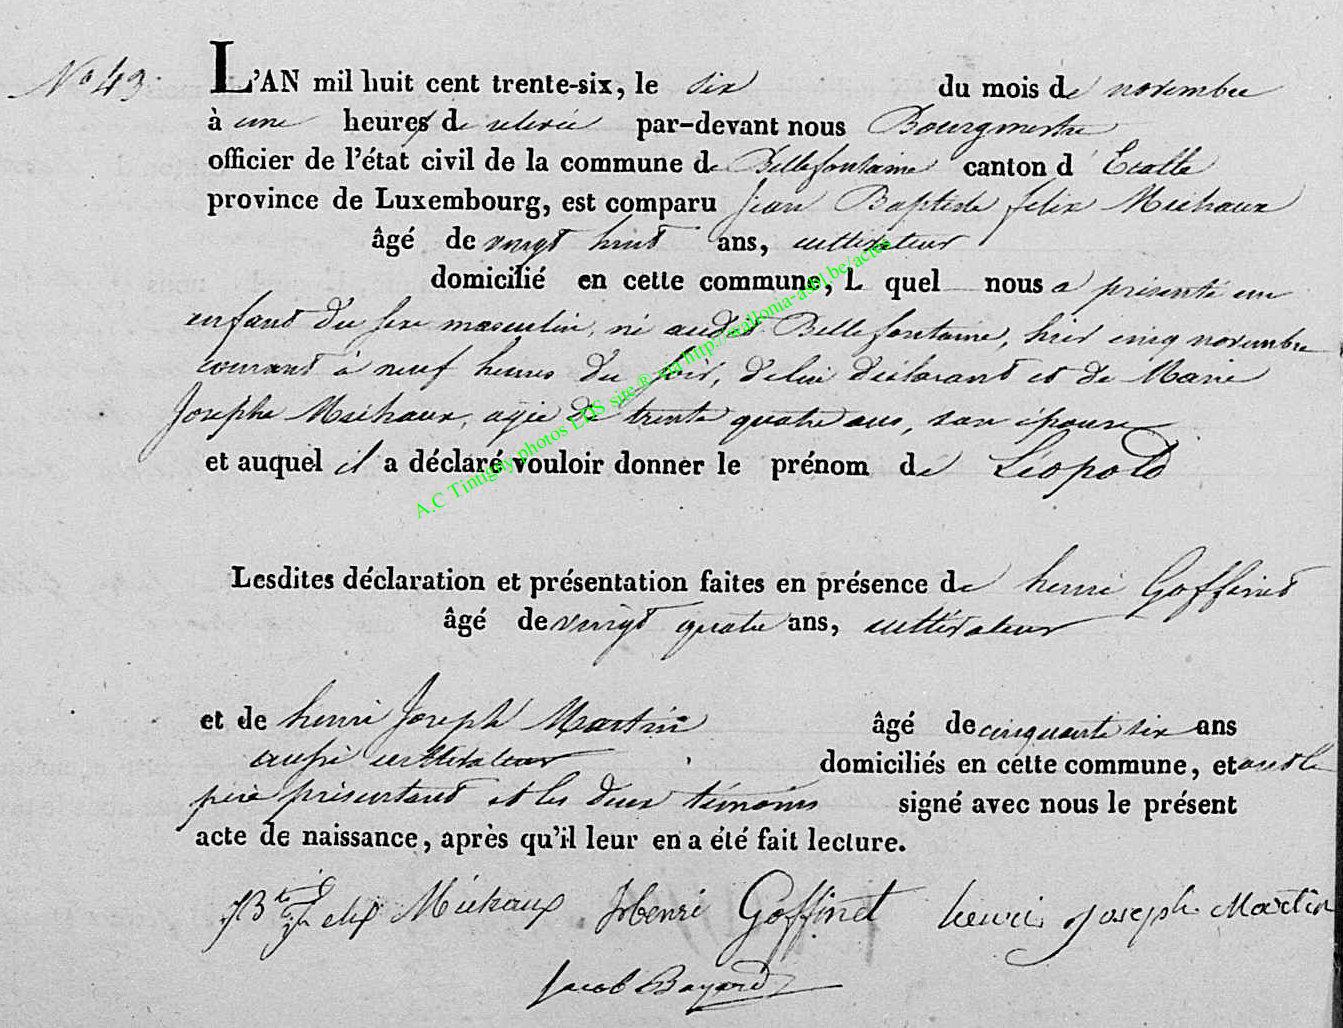 No 43.
L'AN mil huit cent trente-six, le six du mois de novembre
à une heures de relevée par-devant nous Bourgmestre
officier de l'état civil de la commune de Bellefontaine canton d'Etalle
province de Luxembourg, est comparu Jean Baptiste felix Michaux
âgé de vingt huit ans, cultivateur
domicilié en cette commune, L quel nous a présenté un
enfant du sexe masculin, né audit Bellefontaine, hier cinq novembre
courant à neuf heures du soir, de lui déclarant et de Marie
Josephe Michaux, agée de trente quatre ans, son épouse
et auquel il a déclaré vouloir donner le prénom de Léopold
Lesdites déclaration et présentation faites en présence de henri Goffinet
âgé de vingt quatre ans, cultivateur
et de henri Joseph Martin âgé de cinquante six ans
aussi cultivateur domiciliés en cette commune, et ont le
père présentant et les deux témoins signé avec nous le présent
acte de naissance, après qu'il leur en a été fait lecture.
JBte felix Michaux Henri Goffinet henri Joseph Martin
Jacob Bayard
A.C Tintigny photos EDS site ® via http://wallonia-asbl.be/actes